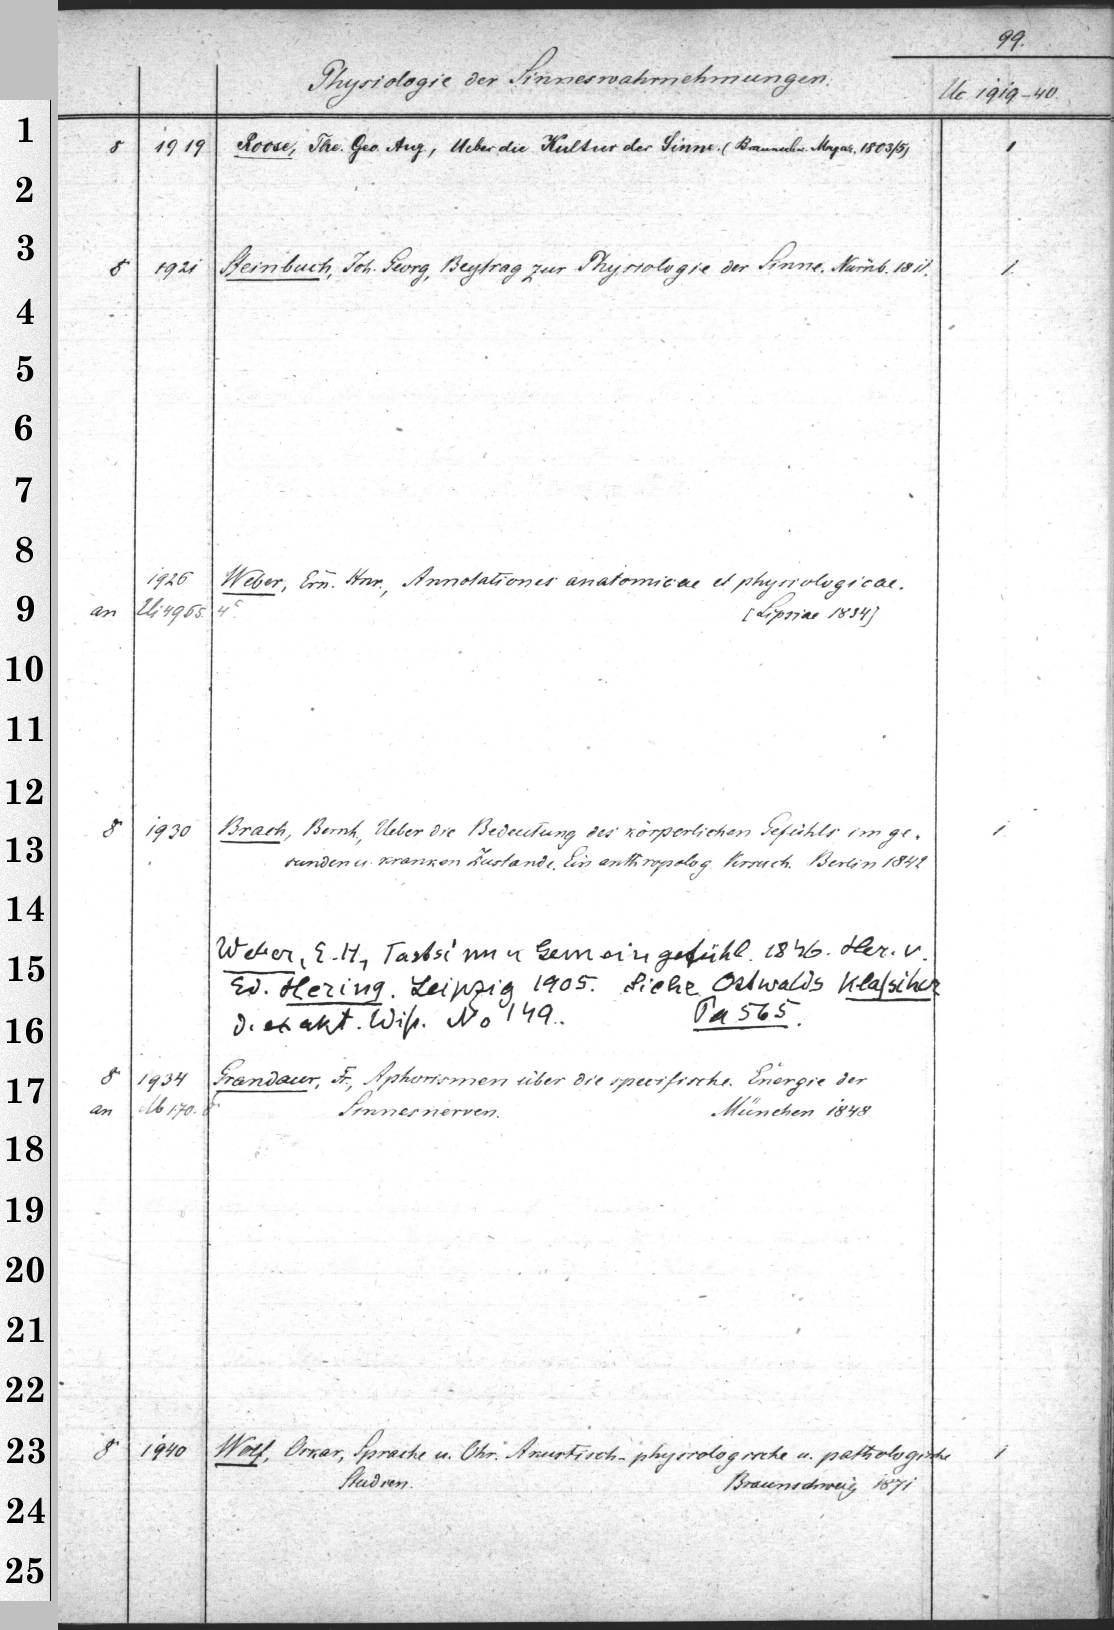 99.
Physiologie der Sinneswahrnehmungen.
Uc 1919-40.
1
8 1919 Roose, The. Geo. Aug., Ueber die Kultur der Sinne. (Braunschw. Magaz. 1803/5) 1
2
3
8 1921 Steinbuch, Joh. Georg, Beytrag zur Physiologie der Sinne. Nürnb. 1811. 1
4
5
6
7
8
1926 Weber, Ern. Hnr., Annotationes anatomicae et physiologicae.
9
an Ui 4965. 4° [Lipsiae 1834]
10
11
12
8 1930 Brach, Bernh., Ueber die Bedeutung des körperlichen Gefühls im ge- 1
13
sunden u. kranken Zustande. Ein anthropolog. Versuch. Berlin 1842
14
Weber, E. H., Tastsinn u Gemeingefühl. 1846. Her. v.
15
Ed. Hering. Leipzig 1905. Siehe Ostwalds Klassiker
16
d. exakt. Wiss. No 149. Pa 565.
8 1934 Grandaur, Fr., Aphorismen über die specifische Energie der
17
an 170. 8° Sinnesnerven. München 1848
18
19
20
21
22
23
8 1940 Wolf, Oskar, Sprache u. Ohr. Akustisch-physiologische u. pathologische 1
Studien. Braunschweig 1871
24
25